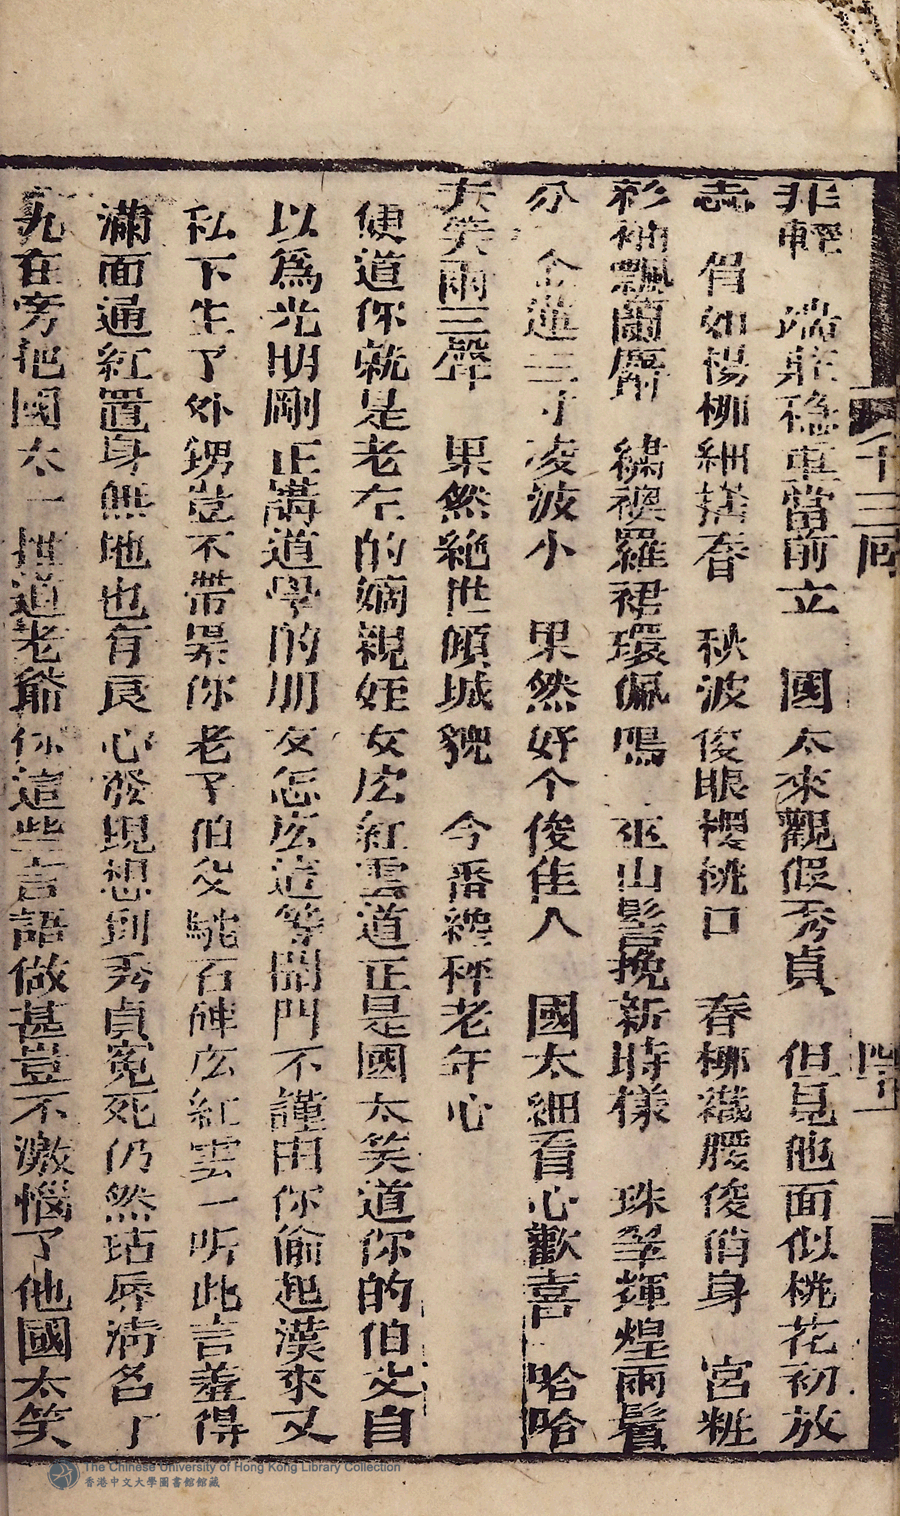 非輕　端莊穩重當前立　國太來觀假秀貞　但見他面似桃花初放
蕊　俏如楊柳細搖春　秋波俊眼櫻桃口　春柳襪腰俊俏身　宮粧
彩袖飄蘭麝　繡襖羅裙環佩鳴　巫山髻挽新時樣　珠翠輝煌兩鬢
分　金蓮三寸凌波小　果然好个俊佳人　國太細看心歡喜　哈哈
大笑兩三聲　果然絕世傾城貌　今番纔稱老年心
便道你就是老左的嫡親姪女庅紅雲道正是國太笑道你的伯父自
以為光明剛正講道學的朋友怎庅這等閨門不謹由你偷起漢來又
私下生了外甥豈不帶累你老子伯父馱石碑庅紅雲一听此言羞得
滿面通紅置身無地也有良心發現想到秀貞冤死仍然玷辱清名丁
九在旁把國太一推道老爺你這些言語做甚豈不激惱了他國太笑
十三回
四五
The Chinese University of Hong Kong Library Collection
香港中文大學圖書館館藏